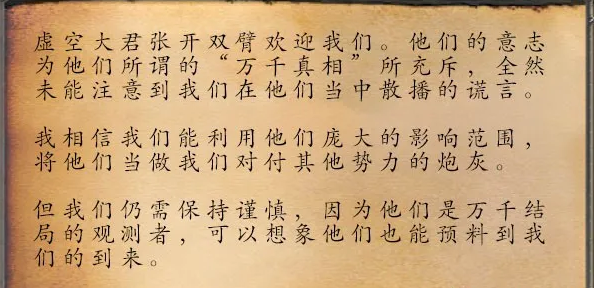 虚空大君张开双臂欢迎我们。他们的意志
为他们所谓的“万千真相”所充斥，全然
未能注意到我们在他们当中散播的谎言。
我相信我们能利用他们庞大的影响范围，
将他们当做我们对付其他势力的炮灰。
但我们仍需保持谨慎，因为他们是万千结
局的观测者，可以想象他们也能预料到我
们的到来。